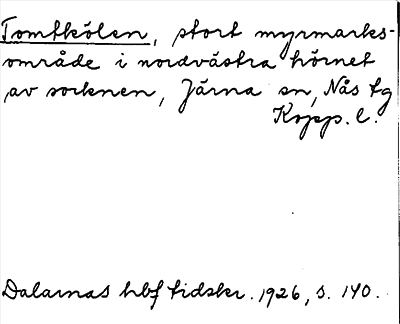 Tomtkölen, stort myrmarks-
område i nordvästra hörnet
av socknen, Järna sn, Nås tg
Kopp. l.
Dalarnas hbf tidskr. 1926, s. 140.